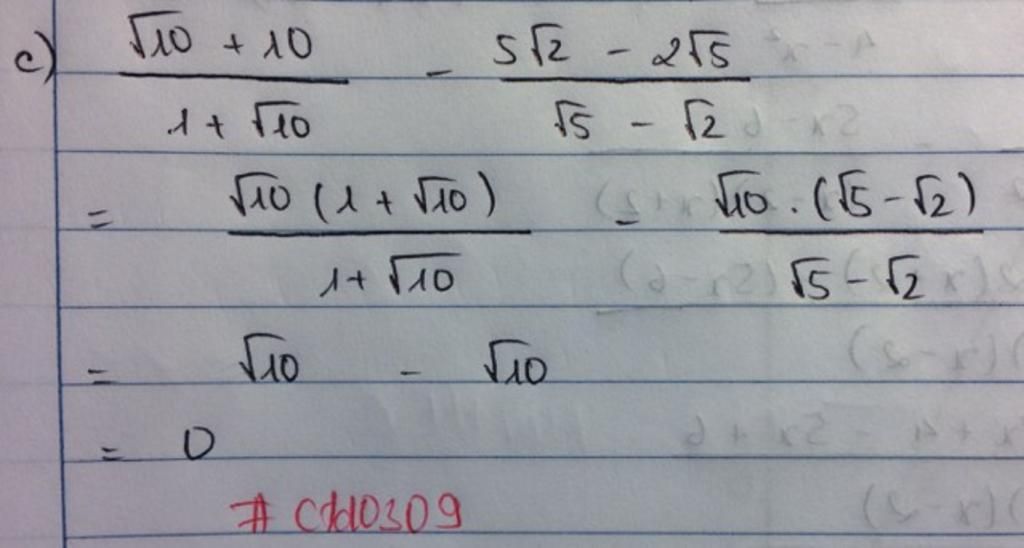 c) (√10 + 10)/(1 + √10) - (5√2 - 2√5)/(√5 - √2)
= √10 (1 + √10)/(1 + √10) - √10 . (√5 - √2)/(√5 - √2)
= √10 - √10
= 0